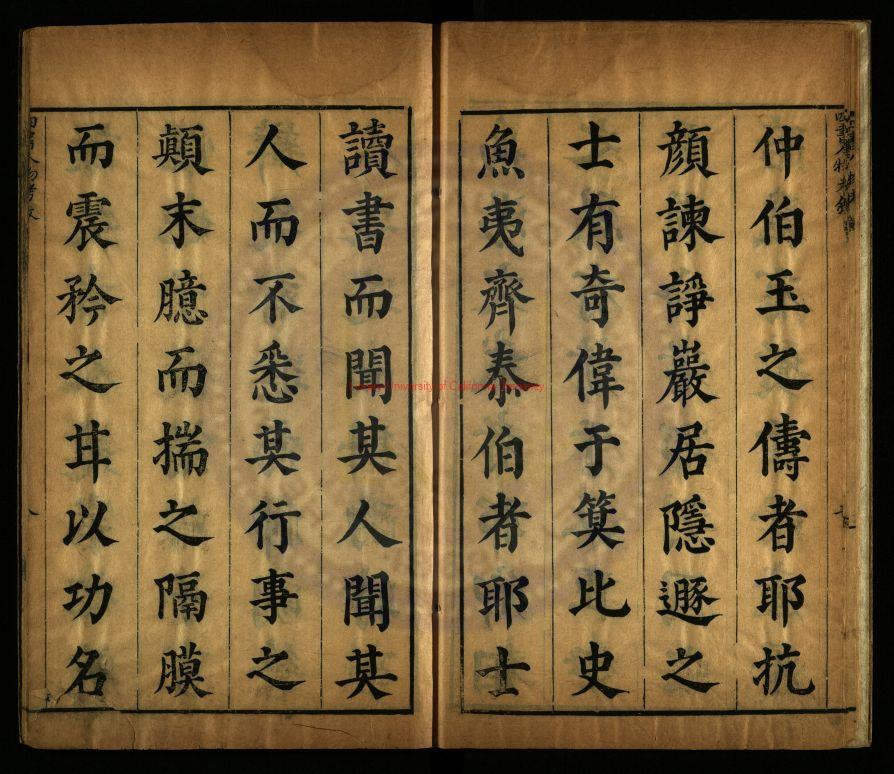 仲伯玉之儔者耶抗
顔諫諍巖居隱遯之
士有奇偉于箕比史
魚夷齊泰伯者耶士
讀書而聞其人聞其
人而不悉其行事之
顛末臆而揣之隔膜
而震矜之甘以功名
University of California